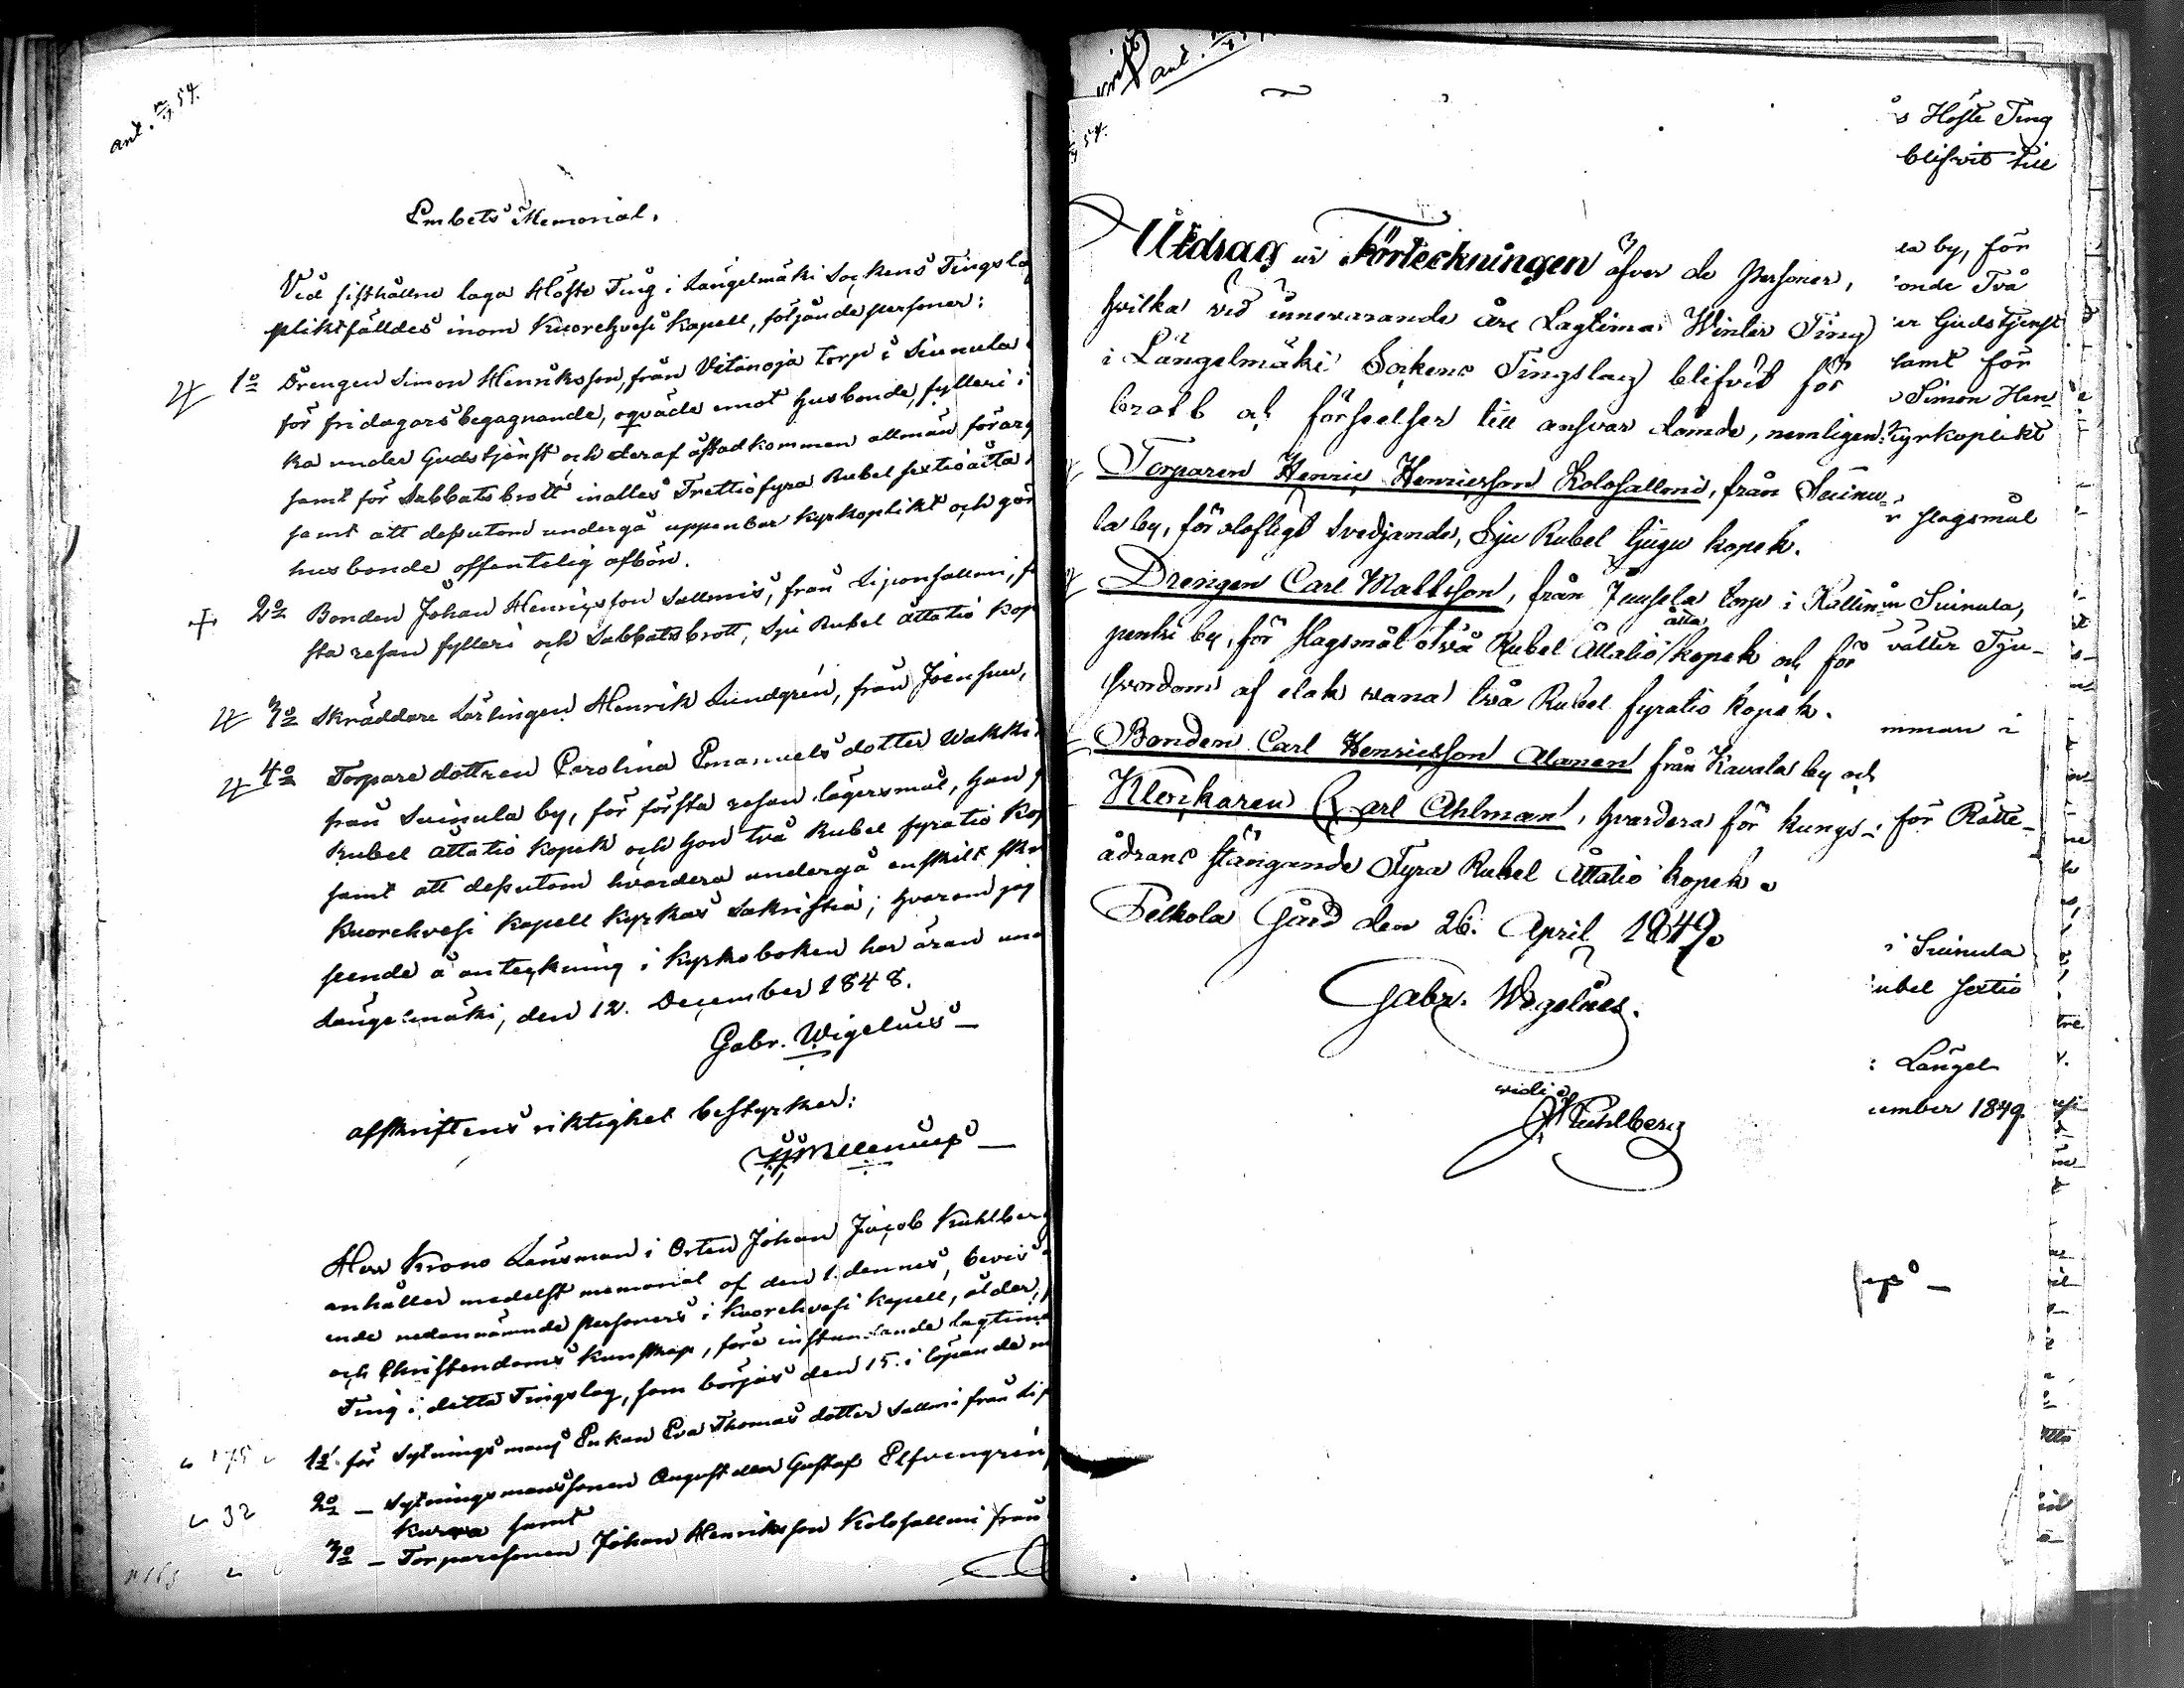 ant. 54.
Embets Memorial.
Vid sisthållne laga Höste Ting i Längelmäki Sockens Tingsla
pliktfälldes inom Kuorehvesi Kapell, följande personer:
1o Drengen Simon Henriksson, från Vitanoja torp i Suinula
för fridagars begagnande, oqväde emot husbonde, fylleri i
ka under Gudstjenst och deraf åstadkommen allmän förarg
samt för Sabbatsbrott inalles Trettiofyra Rubel sextioåtta
samt att dessutom undergå uppenbar Kyrkoplikt och gör
husbonde offentelig afbön.
2o Bonden Johan Henricsson Sallmis, från Liponsallmi, f
sta resan fylleri och Sabbatsbrott, Sju Rubel åttatio Kop
3o Skräddare Lärlingen Henrik Lundgrén, från Joensuu,
4o Torpare dottren Carolina Emanuels dotter Wakki
från Suinula by, för första resan lägersmål, han
Rubel åttatio Kopek och hon två Rubel fyratio Kop
samt att dessutom hvardera undergå enskilt skr
Kuorehvesi Kapell Kyrkas Sakristia; hvarom jag
seende å anteckning i Kyrkoboken har äran und
Längelmäki, den 12. December 1848.
Gabr. Wigelius
afskriftens riktighet bestyrker:
Herr Krono Länsman i Orten Johan Jacob Kuhlberg
anhåller medelst memorial af den 1. dennes, bevis
ende nedannämnde personers i Kuorehvesi Kapell, ålder,
och Christendoms kunskap, före instundande lagtima
Ting i detta Tingslag, som börjas den 15. i löpande m
175 1o för Sytningsmans Enkan Eva Thomas dotter Sallmi från Lip
32 2o — Sytningsmanssonen August eller Gustaf Elfvengrén
Kurva samt
3o — Torparesonen Johan Henriksson Kolosallmi från
ant.
54.
Utdrag ur Förteckningen öfver de Personer,
hvilka vid innevarande års Lagtima Winter Ting
i Längelmäki Sockens Tingslag blifvit för
brott och förseelser till ansvar dömde, nemligen:
Torparen Henric Henricsson Kolosallmi, från Suinu-
la by, för olofligt svedjande, Sju Rubel tjugu kopek.
Drengen Carl Mattsson, från Jumsela torp i Kallin-
penki by, för slagsmål två Rubel Åttatio åtta kopek och för
svordom af elak vana två Rubel fyratio kopek.
Bonden Carl Henricsson Alanen från Kavala by och
Klockaren Carl Ahlman, hvardera för kungs-
ådrans stängande Fyra Rubel Åttatio kopek.
Pelkola Gård den 26. April 1849.
Gabr. Wigelius.
vidi
JJKuhlberg
s Höste Ting
blifvit till
la by, för
onde Två
ur Gudstjenst
samt för
Simon Hen-
kyrkoplikt
r slagsmål
Suinula,
vätter Tju-
mman i
för Rätte-
i Suinula
ubel sextio
: Längel-
cember 1849.